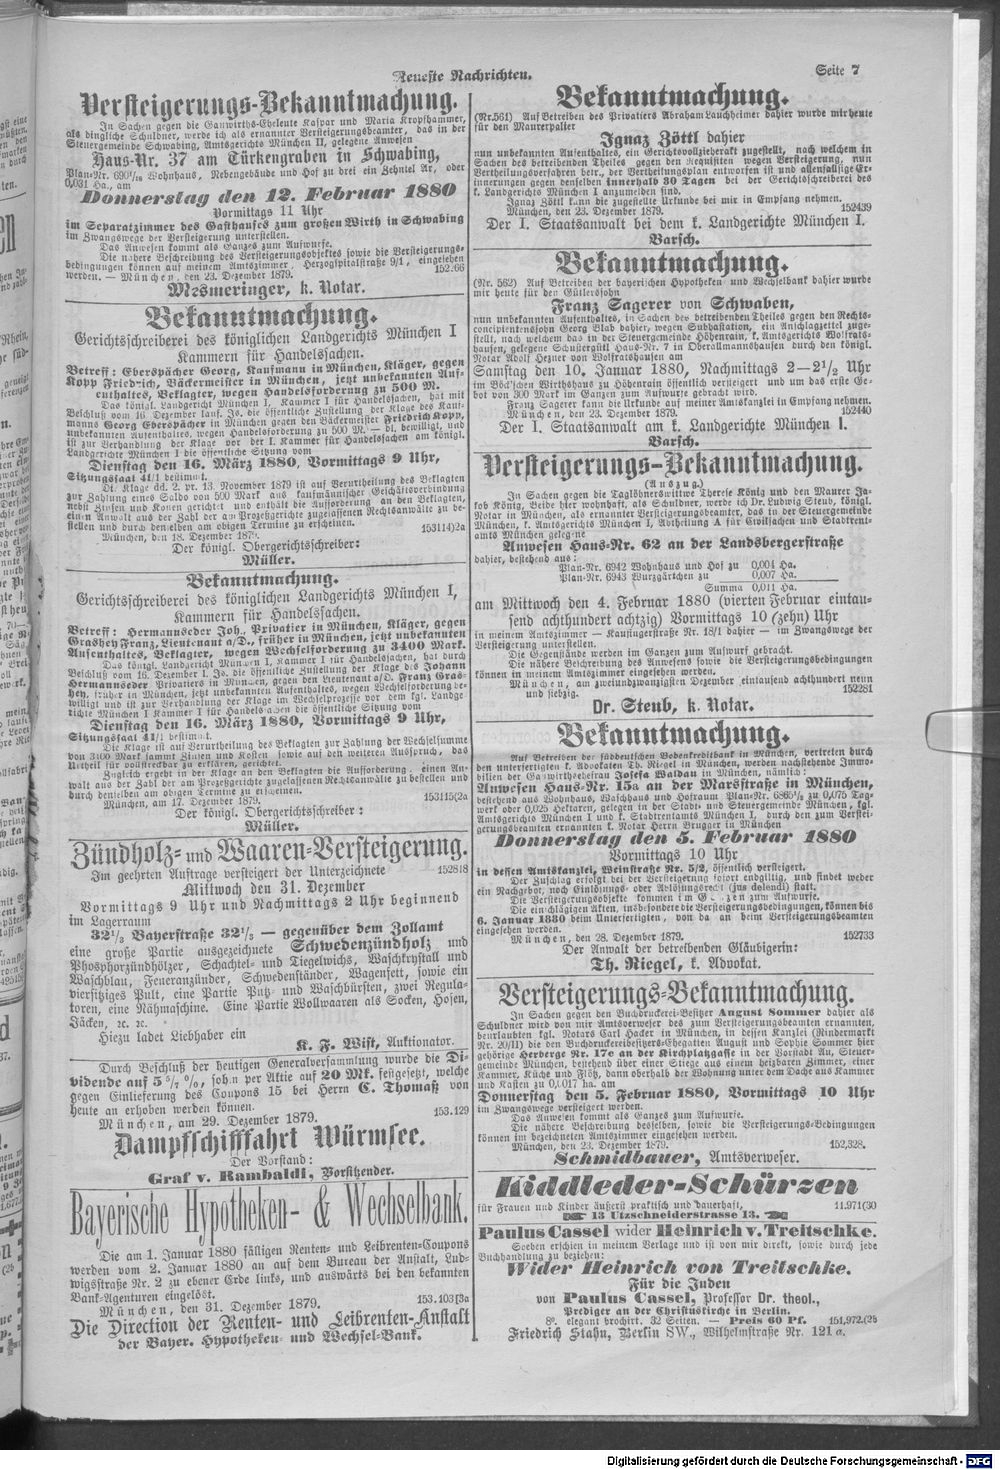 Neueste Nachrichten.
Seite 7
Versteigerungs-Bekanntmachung.
In Sachen gegen die Gauwirths-Eheleute Kaspar und Maria Kropfhammer,
als dingliche Schuldner, werde ich als ernannter Versteigerungsbeamter, das in der
Steuergemeinde Schwabing, Amtsgerichts München II, gelegene Anwesen
Haus-Nr. 37 am Türkengraben in Schwabing,
Plan-Nr. 690 1/18 Wohnhaus, Nebengebäude und Hof zu drei ein Zehntel Ar, oder
0,031 Ha., am
Donnerstag den 12. Februar 1880
Vormittags 11 Uhr
im Separatzimmer des Gasthauses zum großen Wirth in Schwabing
im Zwangswege der Versteigerung unterstellen.
Das Anwesen kommt als Ganzes zum Aufwurfe.
Die nähere Beschreibung des Versteigerungsobjektes sowie die Versteigerungs-
bedingungen können auf meinem Amtszimmer, Herzogspitalstraße 9/1, eingesehen
werden. — München, den 23. Dezember 1879. 152.66
Mesmeringer, k. Notar.
Bekanntmachung.
Gerichtsschreiberei des königlichen Landgerichts München I
Kammern für Handelssachen.
Betreff: Eberspächer Georg, Kaufmann in München, Kläger, gegen
Kopp Friedrich, Bäckermeister in München, jetzt unbekannten Auf-
enthaltes, Beklagter, wegen Handelsforderung zu 500 M.
Das königl. Landgericht München I, Kammer I für Handelssachen, hat mit
Beschluß vom 16. Dezember lauf. Js. die öffentliche Zustellung der Klage des Kauf-
manns Georg Eberspächer in München gegen den Bäckermeister Friedrich Kopp,
unbekannten Aufenthaltes, wegen Handelsforderung zu 500 M. — dl. bewilligt, und
ist zur Verhandlung der Klage vor der I. Kammer für Handelssachen am königl.
Landgerichte München I die öffentliche Sitzung vom
Dienstag den 16. März 1880, Vormittags 9 Uhr,
Sitzungssaal 41/1 bestimmt.
Die Klage dd. 2. pr. 13. November 1879 ist auf Verurtheilung des Beklagten
zur Zahlung eines Saldo von 500 Mark aus kaufmännischer Geschäftsverbindung
nebst Zinsen und Kosten gerichtet und enthält die Aufforderung an den Beklagten,
einen Anwalt aus der Zahl der am Prozeßgerichte zugelassenen Rechtsanwälte zu be-
stellen und durch denselben am obigen Termine zu erscheinen.
München, den 18. Dezember 1879. 153114)2a
Der königl. Obergerichtsschreiber:
Müller.
Bekanntmachung.
Gerichtsschreiberei des königlichen Landgerichts München I,
Kammern für Handelssachen.
Betreff: Hermannseder Joh., Privatier in München, Kläger, gegen
Grashey Franz, Lieutenant a/D., früher in München, jetzt unbekannten
Aufenthaltes, Beklagter, wegen Wechselforderung zu 3400 Mark.
Das königl. Landgericht München I, Kammer I für Handelssachen, hat durch
Beschluß vom 16. Dezember l. Js. die öffentliche Zustellung der Klage des Johann
Hermannseder Privatiers in München, gegen den Lieutenant a/D. Franz Gras-
hey, früher in München, jetzt unbekannten Aufenthaltes, wegen Wechselforderung be-
willigt und ist zur Verhandlung der Klage im Wechselprozesse vor dem kgl. Landge-
richte München I Kammer I für Handelssachen die öffentliche Sitzung vom
Dienstag den 16. März 1880, Vormittags 9 Uhr,
Sitzungssaal 41/1 bestimmt.
Die Klage ist auf Verurtheilung des Beklagten zur Zahlung der Wechselsumme
von 3400 Mark sammt Zinsen und Kosten sowie auf den weiteren Ausspruch, das
Urtheil für vollstreckbar zu erklären, gerichtet.
Zugleich ergeht in der Klage an den Beklagten die Aufforderung, einen An-
walt aus der Zahl der am Prozeßgerichte zugelassenen Rechtsanwälte zu bestellen und
durch denselben am obigen Termine zu erscheinen.
München, am 17. Dezember 1879. 153115(2a
Der königl. Obergerichtsschreiber:
Müller.
Zündholz- und Waaren-Versteigerung.
Im geehrten Auftrage versteigert der Unterzeichnete 152818
Mittwoch den 31. Dezember
Vormittags 9 Uhr und Nachmittags 2 Uhr beginnend
im Lagerraum
32 1/3 Bayerstraße 32 1/3 — gegenüber dem Zollamt
eine große Partie ausgezeichnete Schwedenzündholz und
Phosphorzündhölzer, Schachtel- und Tiegelwichs, Waschkrystall und
Waschblau, Feueranzünder, Schwedenständer, Wagenfett, sowie ein
viersitziges Pult, eine Partie Putz- und Waschbürsten, zwei Regula-
toren, eine Nähmaschine. Eine Partie Wollwaaren als Socken, Hosen,
Jäcken, ec. ec.
Hiezu ladet Liebhaber ein
K. F. Wist, Auktionator.
Durch Beschluß der heutigen Generalversammlung wurde die Di-
vidende auf 5 5/7 %, sohin per Aktie auf 20 Mk. festgesetzt, welche
gegen Einlieferung des Coupons 15 bei Herrn C. Thomaß von
heute an erhoben werden können. 153.129
München, am 29. Dezember 1879.
Dampfschifffahrt Würmsee.
Der Vorstand:
Graf v. Rambaldi, Vorsitzender.
Bayerische Hypotheken- & Wechselbank.
Die am 1. Januar 1880 fälligen Renten- und Leibrenten-Coupons
werden vom 2. Januar 1880 an auf dem Bureau der Anstalt, Lud-
wigsstraße Nr. 2 zu ebener Erde links, und auswärts bei den bekannten
Bank-Agenturen eingelöst. 153.103[3a
München, den 31. Dezember 1879.
Die Direction der Renten- und Leibrenten-Anstalt
der Bayer. Hypotheken- und Wechsel-Bank.
Bekanntmachung.
(Nr. 561) Auf Betreiben des Privatiers Abraham Lauchheimer dahier wurde mir heute
für den Maurerpalier
Ignaz Zöttl dahier
nun unbekannten Aufenthaltes, ein Gerichtsvollzieherakt zugestellt, nach welchem in
Sachen des betreibenden Theiles gegen den Requisiten wegen Versteigerung, nun
Vertheilungsverfahren betr., der Vertheilungsplan entworfen ist und allenfallsige Er-
innerungen gegen denselben innerhalb 30 Tagen bei der Gerichtsschreiberei des
k. Landgerichts München I anzumelden sind.
Ignaz Zöttl kann die zugestellte Urkunde bei mir in Empfang nehmen.
München, den 23. Dezember 1879. 152439
Der I. Staatsanwalt bei dem k. Landgerichte München I.
Barsch.
Bekanntmachung.
(Nr. 562) Auf Betreiben der bayerischen Hypotheken- und Wechselbank dahier wurde
mir heute für den Gütlerssohn
Franz Sagerer von Schwaben,
nun unbekannten Aufenthaltes, in Sachen des betreibenden Theiles gegen den Rechts-
concipientenssohn Georg Blab dahier, wegen Subhastation, ein Anschlagzettel zuge-
stellt, nach welchem das in der Steuergemeinde Höhenrain, k. Amtsgerichts Wolfrats-
hausen, gelegene Schustergütl Haus-Nr. 7 in Oberallmannshausen durch den königl.
Notar Adolf Hezner von Wolfratshausen am
Samstag den 10. Januar 1880, Nachmittags 2—2 1/2 Uhr
im Böck'schen Wirthshaus zu Höhenrain öffentlich versteigert und um das erste Ge-
bot von 300 Mark im Ganzen zum Aufwurfe gebracht wird.
Franz Sagerer kann die Urkunde auf meiner Amtskanzlei in Empfang nehmen.
München, den 23. Dezember 1879. 152440
Der I. Staatsanwalt am k. Landgerichte München I.
Barsch.
Versteigerungs-Bekanntmachung.
(Auszug.)
In Sachen gegen die Taglöhnerswittwe Therese König und den Maurer Ja-
kob König, Beide hier wohnhaft, als Schuldner, werde ich Dr. Ludwig Steub, königl.
Notar in München, als ernannter Versteigerungsbeamter, das in der Steuergemeinde
München, k. Amtsgerichts München I, Abtheilung A für Civilsachen und Stadtrent-
amts München gelegene
Anwesen Haus-Nr. 62 an der Landsbergerstraße
dahier, bestehend aus:
Plan-Nr. 6942 Wohnhaus und Hof zu 0,004 Ha.
Plan-Nr. 6943 Wurzgärtchen zu 0,007 Ha.
Summa 0,011 Ha.
am Mittwoch den 4. Februar 1880 (vierten Februar eintau-
send achthundert achtzig) Vormittags 10 (zehn) Uhr
in meinem Amtszimmer — Kaufingerstraße Nr. 18/1 dahier — im Zwangswege der
Versteigerung unterstellen.
Die Gegenstände werden im Ganzen zum Auswurf gebracht.
Die nähere Beschreibung des Anwesens sowie die Versteigerungsbedingungen
können in meinem Amtszimmer eingesehen werden.
München, am zweiundzwanzigsten Dezember eintausend achthundert neun
und siebzig. 152281
Dr. Steub, k. Notar.
Bekanntmachung.
Auf Betreiben der süddeutschen Bodenkreditbank in München, vertreten durch
den unterfertigten k. Advokaten Th. Riegel in München, werden nachstehende Immo-
bilien der Gastwirthsehefrau Josefa Waldau in München, nämlich:
Anwesen Haus-Nr. 15a an der Marsstraße in München,
bestehend aus Wohnhaus, Waschhaus und Hofraum Plan-Nr. 6865 1/3 zu 0,075 Tag-
werk oder 0,025 Hektaren, gelegen in der Stadt- und Steuergemeinde München, kgl.
Amtsgerichts München I und k. Stadtrentamts München I, durch den zum Verstei-
gerungsbeamten ernannten k. Notar Herrn Brugger in München
Donnerstag den 5. Februar 1880
Vormittags 10 Uhr
in dessen Amtskanzlei, Weinstraße Nr. 5/2, öffentlich versteigert.
Der Zuschlag erfolgt bei der Versteigerung sofort endgiltig, und findet weder
ein Nachgebot, noch Einlösungs- oder Ablösungsrecht (jus delendi) statt.
Die Versteigerungsobjekte kommen im Ganzen zum Aufwurfe.
Die einschlägigen Akten, insbesondere die Versteigerungsbedingungen, können bis
6. Januar 1880 beim Unterfertigten, von da an beim Versteigerungsbeamten
eingesehen werden.
München, den 28. Dezember 1879. 152733
Der Anwalt der betreibenden Gläubigerin:
Th. Riegel, k. Advokat.
Versteigerungs-Bekanntmachung.
In Sachen gegen den Buchdruckerei-Besitzer August Sommer dahier als
Schuldner wird von mir Amtsverweser des zum Versteigerungsbeamten ernannten,
beurlaubten kgl. Notars Carl Hacker in München, in dessen Kanzlei (Rindermarkt
Nr. 20/II) die den Buchdruckereibesitzers-Ehegatten August und Sophie Sommer hier
gehörige Herberge Nr. 17c an der Kirchplatzgasse in der Vorstadt Au, Steuer-
gemeinde München, bestehend über einer Stiege aus einem heizbaren Zimmer, einer
Kammer, Küche und Flötz, dann oberhalb der Wohnung unter dem Dache aus Kammer
und Kasten zu 0,017 ha. am
Donnerstag den 5. Februar 1880, Vormittags 10 Uhr
im Zwangswege versteigert werden.
Das Anwesen kommt als Ganzes zum Aufwurfe.
Die nähere Beschreibung desselben, sowie die Versteigerungs-Bedingungen
können im bezeichneten Amtszimmer eingesehen werden.
München, den 23. Dezember 1879. 152,328.
Schmidbauer, Amtsverweser.
Kiddleder-Schürzen
für Frauen und Kinder äußerst praktisch und dauerhaft, 11.971(30
13 Utzschneiderstrasse 13.
Paulus Cassel wider Heinrich v. Treitschke.
Soeben erschien in meinem Verlage und ist von mir direkt, sowie durch jede
Buchhandlung zu beziehen:
Wider Heinrich von Treitschke.
Für die Juden
von Paulus Cassel, Professor Dr. theol.,
Prediger an der Christuskirche in Berlin.
8°. elegant brochirt. 32 Seiten. — Preis 60 Pf. 151,972.(2b
Friedrich Stahn, Berlin SW., Wilhelmstraße Nr. 121 a.
Digitalisierung gefördert durch die Deutsche Forschungsgemeinschaft - DFG